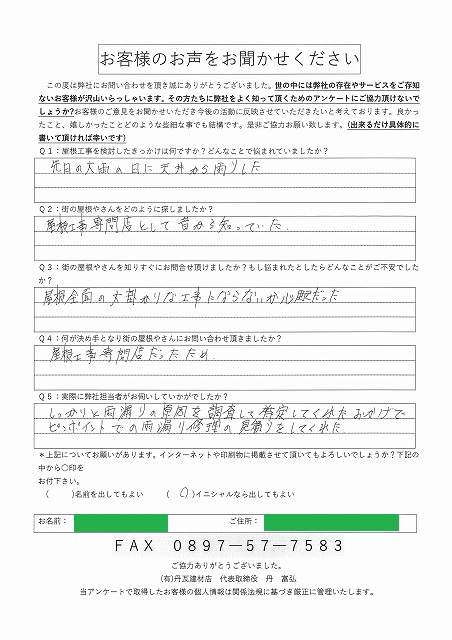 お客様のお声をお聞かせください
この度は弊社にお問い合わせを頂き誠にありがとうございました。世の中には弊社の存在やサービスをご存知
ないお客様が沢山いらっしゃいます。その方たちに弊社をよく知って頂くためのアンケートにご協力頂けないで
しょうか?お客様のご意見をお聞かせいただき今後の活動に反映させていただきたいと考えております。良かっ
たこと、嬉しかったことどのような些細な事でも結構です。是非ご協力お願い致します。(出来るだけ具体的に
書いて頂ければ幸いです)
Q1:屋根工事を検討したきっかけは何ですか?どんなことで悩まれていましたか?
先日の大雨の日に天井から雨りした
Q2:街の屋根やさんをどのように探しましたか?
屋根工事専門店として昔から知っていた.
Q3:街の屋根やさんを知りすぐにお問合せ頂けましたか?もし悩まれたとしたらどんなことがご不安でした
か?
屋根全面の大掛かりな工事にならないか心配だった
Q4:何が決め手となり街の屋根やさんにお問い合わせ頂きましたか?
屋根工事専門店だったため.
Q5:実際に弊社担当者がお伺いしていかがでしたか?
しっかりと雨漏りの原因を調査して特定してくれたおかげで
ピンポイントでの雨漏り修理の見積りをしてくれた
*上記についてお願いがあります。インターネットや印刷物に掲載させて頂いてもよろしいでしょうか?下記の
中から〇印を
お付下さい。
( )名前を出してもよい (〇)イニシャルなら出してもよい
お名前: ご住所:
FAX 0897-57-7583
ご協力ありがとうございました。
(有)丹瓦建材店 代表取締役 丹 富弘
当アンケートで取得したお客様の個人情報は関係法規に基づき厳正に管理いたします。